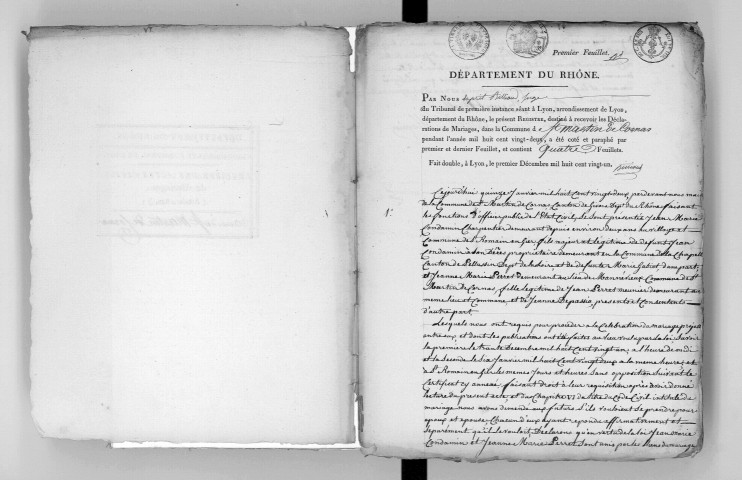 Premier Feuillet.
DÉPARTEMENT DU RHÔNE.
PAR NOUS
du Tribunal de première instance séant à Lyon, arrondissement de Lyon,
département du Rhône, le présent REGISTRE, destiné à recevoir les Décla-
rations de Mariages, dans la Commune d e St martin de Cornas
pendant l'année mil huit cent vingt-deux, a été coté et paraphé par
premier et dernier Feuillet, et contient quatre Feuillets.
Fait double, à Lyon, le premier Décembre mil huit cent vingt-un.
Cejourd'hui quinze Janvier mil huit Cent vingt deux pardevant nous maire
de la Commune de St Martin de Cornas Canton de Givors Dept du Rhône faisant
1.
les fonctions d'officier public de l'Etat Civil, se sont présentés Jean Marie
Condamin Charpentier demeurant depuis environ deux ans au village et
Commune de St Romain en Gier, fils majeur et légitime de défunt Jean
Condamin propriétaire demeurant en la Commune de la Chapelle
Canton de Pellussin Dept de la Loire, et de defunte Marie d'une part,
et Jeanne Marie Perret demeurant au lieu de Commune de St
Martin de Cornas, fille légitime de Jean Perret meunier demeurant au
même lieu et Commune, et de Jeanne Depassio, présents et Consentants
d'autre part.
Lesquels nous ont requis de procéder à la Célébration du mariage projetté
entre eux, et dont les publications ont été faites au lieu voulu par la loi Savoir
la premiere le trente Decembre mil huit Cent vingt un, a l'heure de midi
et la seconde le Six Janvier mil huit Cent vingt deux a la meme heure, et
a St Romain en Gier les memes Jours et heures Sans opposition Suivant le
Certificat cy annexé, faisant droit à leur requisition après avoir donné
lecture du present acte, et du Chapitre VI du titre du Code Civil intitulé du
mariage nous avons demandé aux futurs S'ils vouloient se prendre pour
epoux et epouse, Chacun d'eux ayant repondu affirmativement et
Separément qu'ils le vouloit, Declarons qu'en vertu de la loi Jean Marie
Condamin et Jeanne Marie Perret sont unis par les liens du mariage